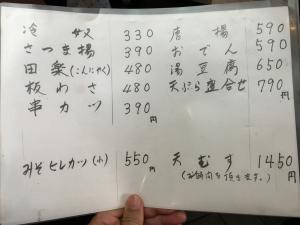 冷奴 330
さつま揚 390
田楽(こんにゃく) 480
板わさ 480
串カツ 390円
みそヒレカツ(小) 550円
唐揚 590
おでん 590
湯豆腐 650
天ぷら盛合せ 790円
天むす 1450円
(お時間を頂きます。)